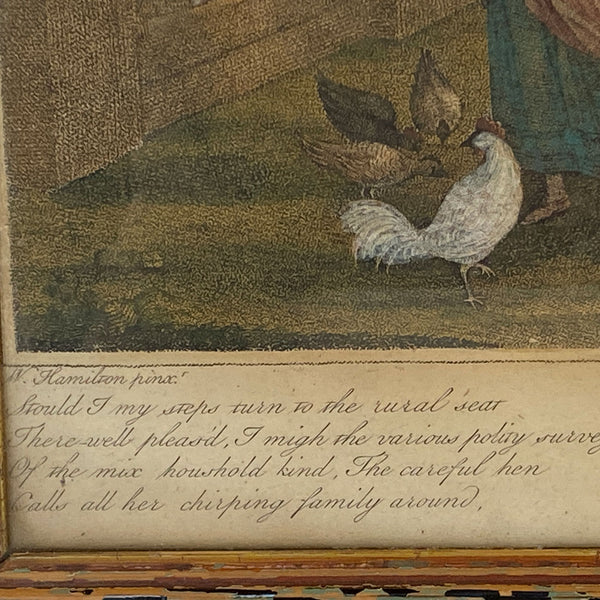 W. Hamilton pinx.t
Stould I my steps turn to the rural seat
There well pleas'd, I migh the various polity survey
Of the mix houshold kind, The careful hen
Calls all her chirping family around,